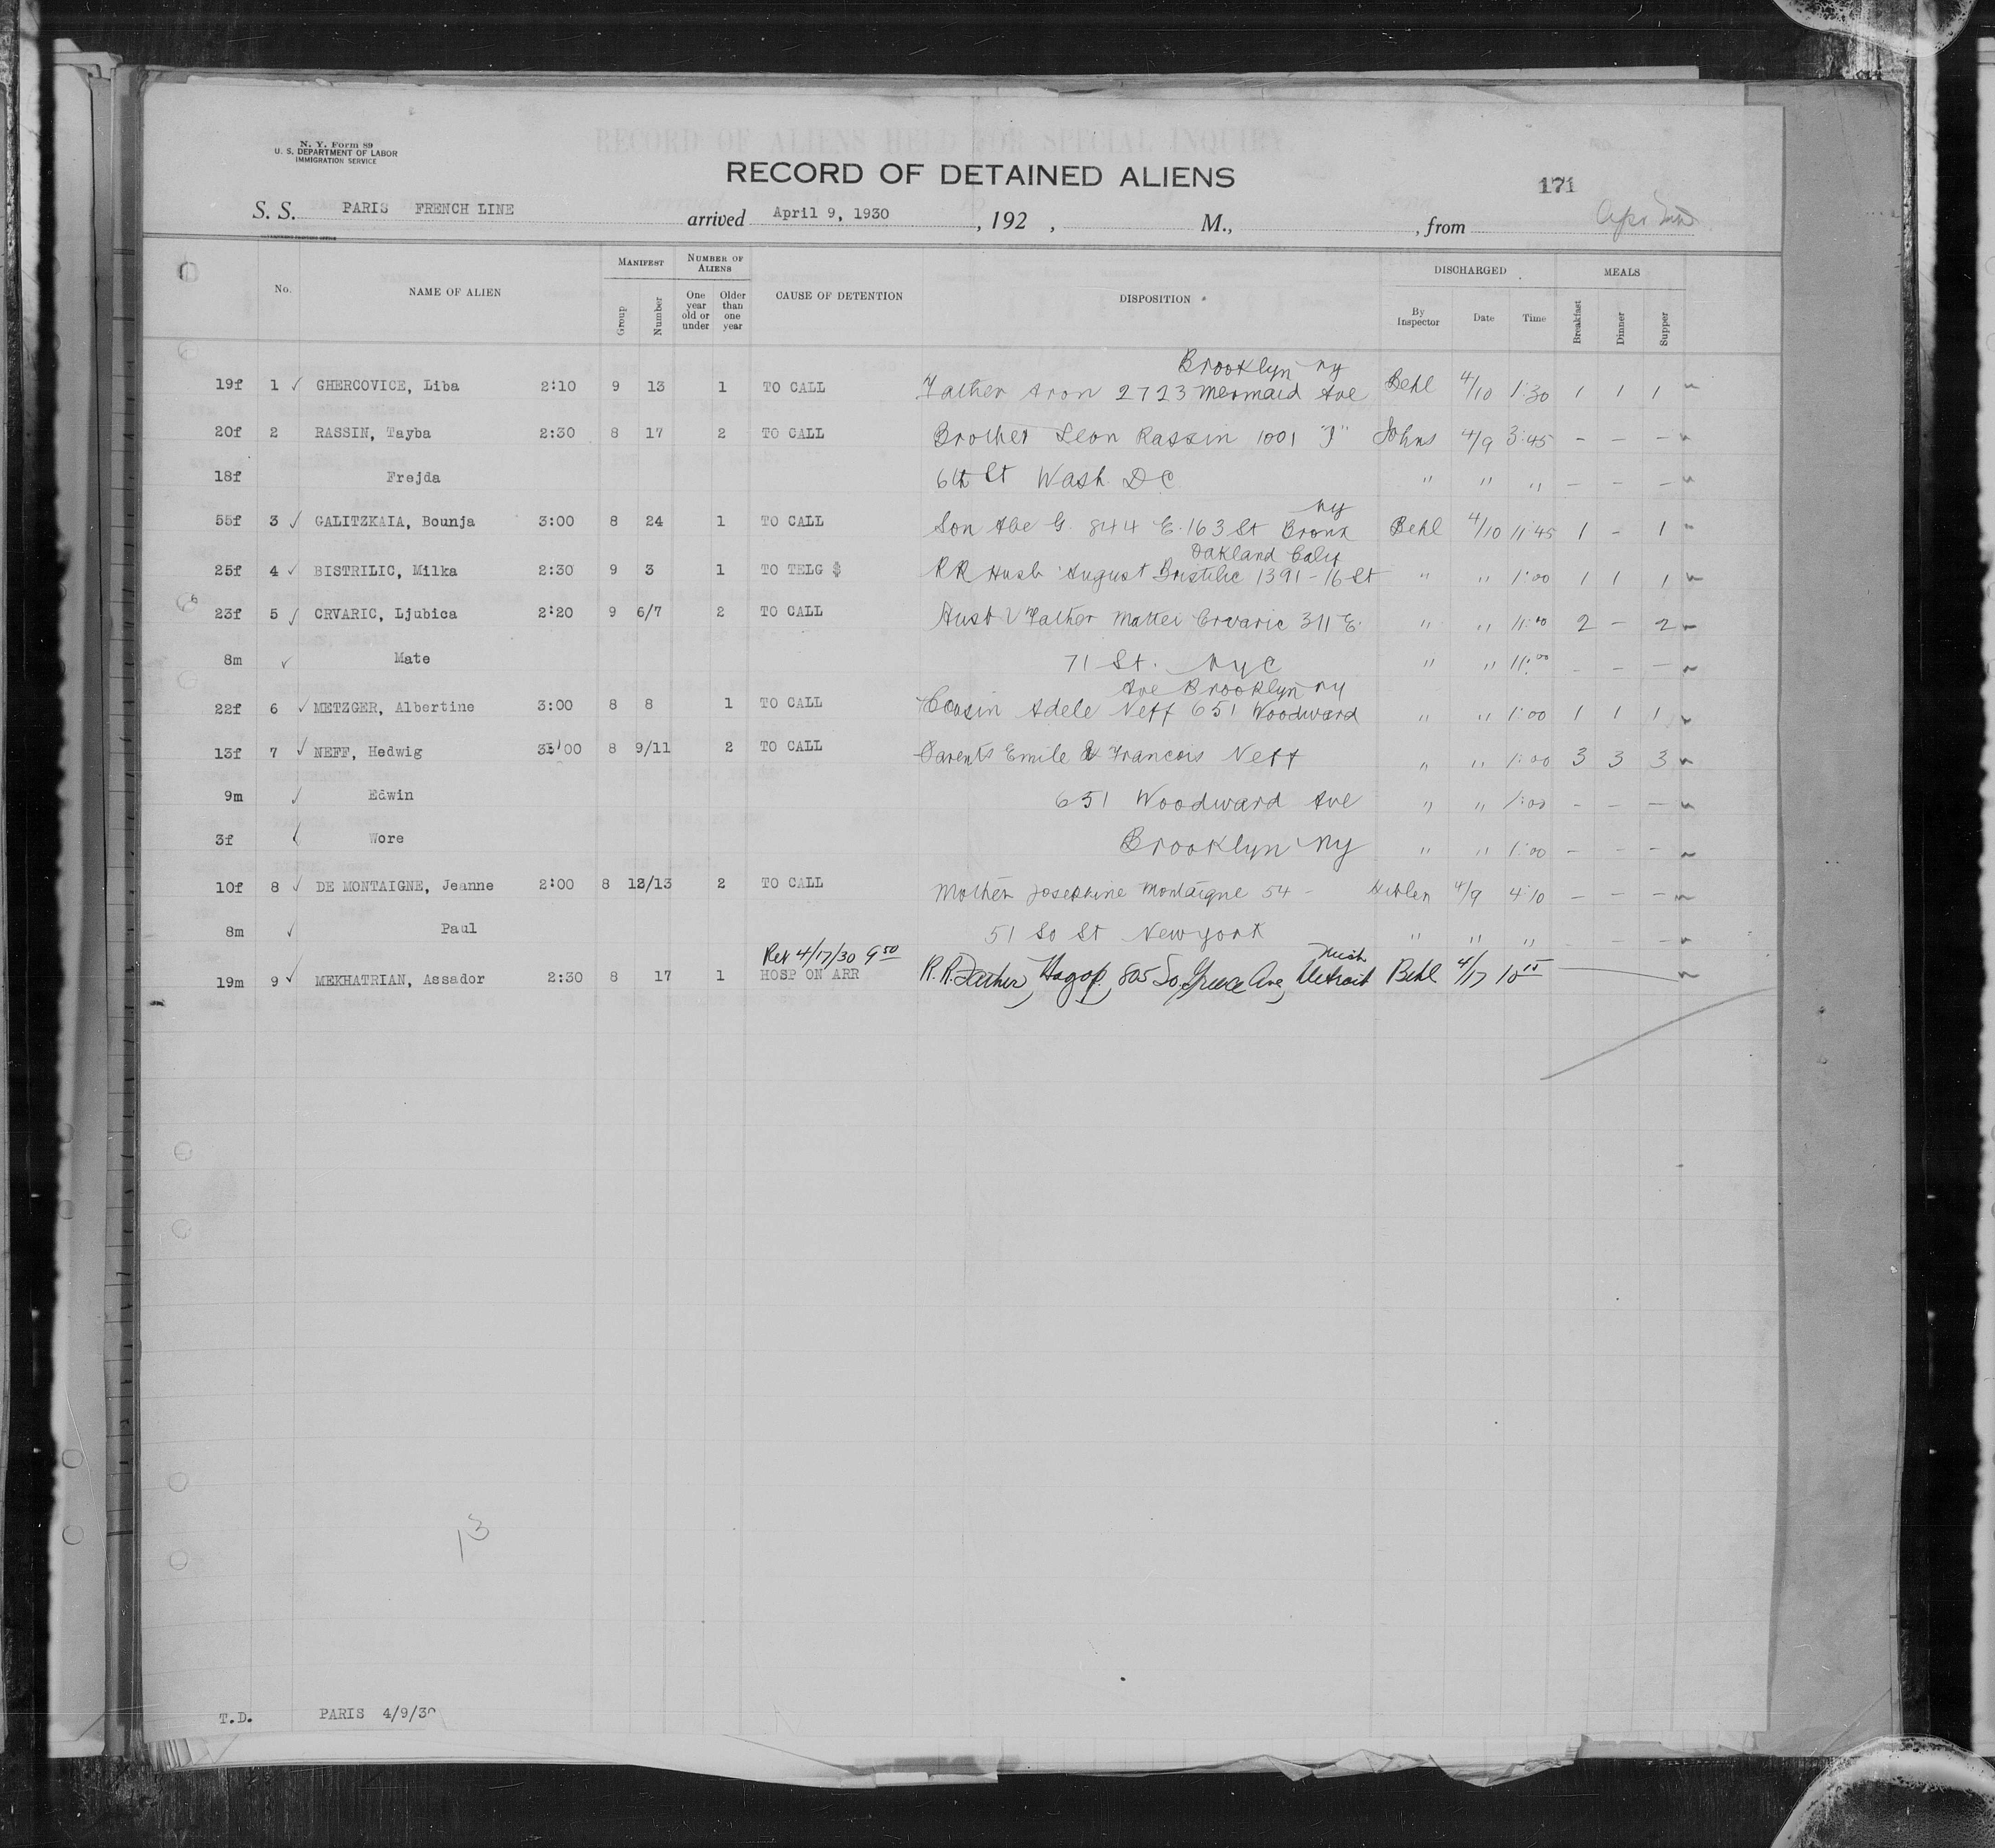 N. Y. Form 89
U. S. DEPARTMENT OF LABOR
IMMIGRATION SERVICE
RECORD OF ALIENS HELD FOR SPECIAL INQUIRY
RECORD OF DETAINED ALIENS
171
S. S. PARIS FRENCH LINE arrived April 9, 1930, 192 , M., , from
No. NAME OF ALIEN MANIFEST Group Number NUMBER OF ALIENS One year old or under Older than one year CAUSE OF DETENTION DISPOSITION DISCHARGED By Inspector Date Time MEALS Breakfast Dinner Supper
Brooklyn NY
19f 1 ✓ GHERCOVICE, Liba 2:10 9 13 1 TO CALL Father Aron 2723 Mermaid Ave Behl 4/10 1:30 1 1 1
20f 2 RASSIN, Tayba 2:30 8 17 2 TO CALL Brother Leon Rassin 1001 Johns 4/9 3:45 - - -
18f Frejda 6th St Wash. DC " " " - - -
NY
55f 3 ✓ GALITZKAIA, Bounja 3:00 8 24 1 TO CALL Son Abe G. 844 E. 163 St Bronx Behl 4/10 11:45 1 - 1
Oakland Calif
25f 4 ✓ BISTRILIC, Milka 2:30 9 3 1 TO TELG $ RR Husb August Bristilic 1391-16 St " " 1:00 1 1 1
23f 5 ✓ CRVARIC, Ljubica 2:20 9 6/7 2 TO CALL Husb & Father Mattei Crvaric 311 E. " " 11:00 2 - 2
8m ✓ Mate 71 St. NYC " " 11:00 - - -
Ave Brooklyn NY
22f 6 ✓ METZGER, Albertine 3:00 8 8 1 TO CALL Cousin Adele Neff 651 Woodward " " 1:00 1 1 1
13f 7 ✓ NEFF, Hedwig 3:00 8 9/11 2 TO CALL Parents Emile & Francois Neff " " 1:00 3 3 3
9m ✓ Edwin 651 Woodward Ave " " 1:00 - - -
3f ✓ Wore Brooklyn NY " " 1:00 - - -
10f 8 ✓ DE MONTAIGNE, Jeanne 2:00 8 12/13 2 TO CALL Mother Josephine Montaigne 54 - 4/9 4:10 - - -
8m ✓ Paul 51 So St New York " " " - - -
Rec 4/17/30 9 50 Mich
19m 9 ✓ MEKHATRIAN, Assador 2:30 8 17 1 HOSP ON ARR R.R. Father, Hagop, 805 So. Ave, Detroit Behl 4/17 10 15
13
T.D. PARIS 4/9/30